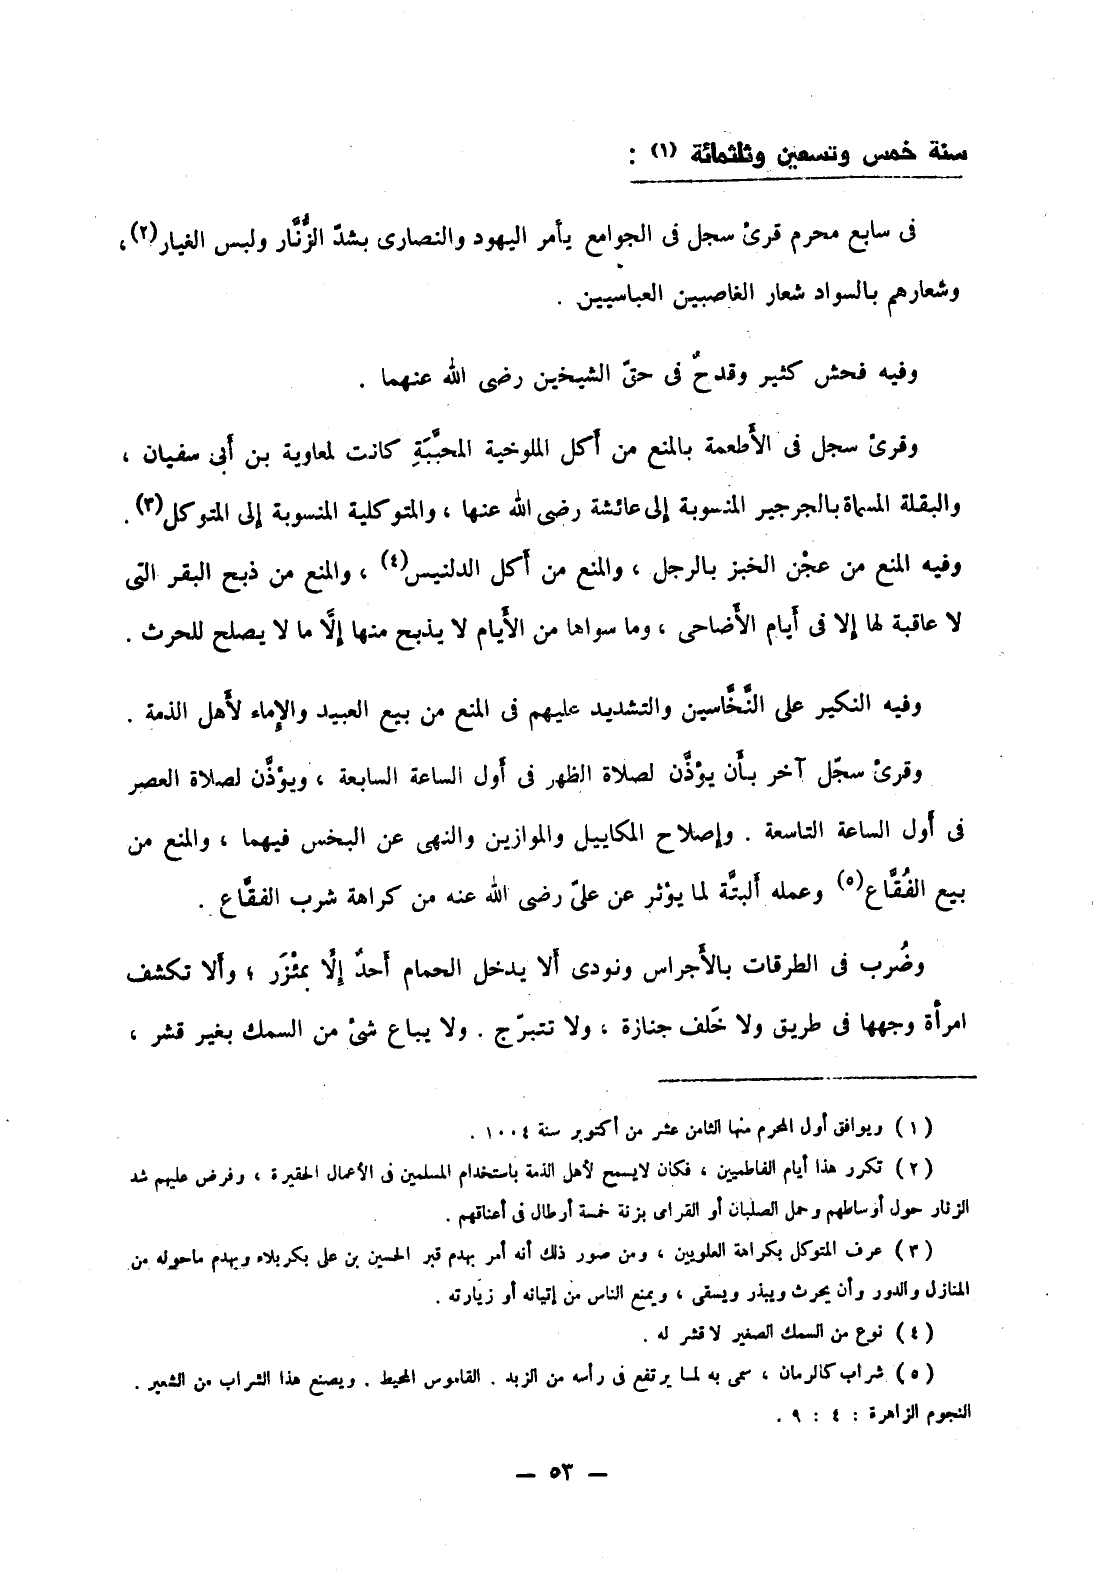 سنة خمس وتسعين وثلثمائة (١) :
فى سابع محرم قرئ سجل فى الجوامع يأمر اليهود والنصارى بشدّ الزُّنَّار ولبس الغيار(٢) ،
وشعارهم بالسواد شعار الغاصبين العباسيين .
وفيه فحش كثير وقدحٌ فى حقّ الشيخين رضى الله عنهما .
وقرئ سجل فى الأَطعمة بالمنع من أَكل الملوخية المحبَّبَةِ كانت لمعاوية بن أَبى سفيان ،
والبقلة المسماة بالجرجير المنسوبة إلى عائشة رضى الله عنها ، والمتوكلية المنسوبة إلى المتوكل(٣) .
وفيه المنع من عجْن الخبز بالرجل ، والمنع من أَكل الدلنيس(٤) ، والمنع من ذبح البقر التى
لا عاقبة لها إلا فى أَيام الأَضاحى ، وما سواها من الأَيام لا يذبح منها إلَّا ما لا يصلح للحرث .
وفيه النكير على النَّخَّاسين والتشديد عليهم فى المنع من بيع العبيد والإِماء لأَهل الذمة .
وقرئ سجّل آخر بأَن يؤذَّن لصلاة الظهر فى أَول الساعة السابعة ، ويؤذَّن لصلاة العصر
فى أَول الساعة التاسعة . وإصلاح المكاييل والموازين والنهى عن البخس فيهما ، والمنع من
بيع الفُقَّاع(٥) وعمله أَلبتَّة لما يؤثر عن علىّ رضى الله عنه من كراهة شرب الفقَّاع .
وضُرب فى الطرقات بالأَجراس ونودى أَلا يدخل الحمام أَحدٌ إلَّا بمئْزَر ؛ وأَلا تكشف
امرأَة وجهها فى طريق ولا خَلف جنازة ، ولا تتبرّج . ولا يباع شئ من السمك بغير قشر ،
(١) ويوافق أول المحرم منها الثامن عشر من أكتوبر سنة ١٠٠٤ .
(٢) تكرر هذا أيام الفاطميين ، فكان لايسمح لأهل الذمة باستخدام المسلمين فى الأعمال الحقيرة ، وفرض عليهم شد
الزنار حول أوساطهم وحمل الصلبان أو القرامى بزنة خمسة أرطال فى أعناقهم .
(٣) عرف المتوكل بكراهة العلويين ، ومن صور ذلك أنه أمر بهدم قبر الحسين بن على بكربلاء وبهدم ماحوله من
المنازل والدور وأن يحرث ويبذر ويسقى ، ويمنع الناس من إتيانه أو زيارته .
(٤) نوع من السمك الصغير لا قشر له .
(٥) شراب كالرمان ، سمى به لما يرتفع فى رأسه من الزبد . القاموس المحيط . ويصنع هذا الشراب من الشعير .
النجوم الزاهرة : ٤ : ٩ .
— ٥٣ —